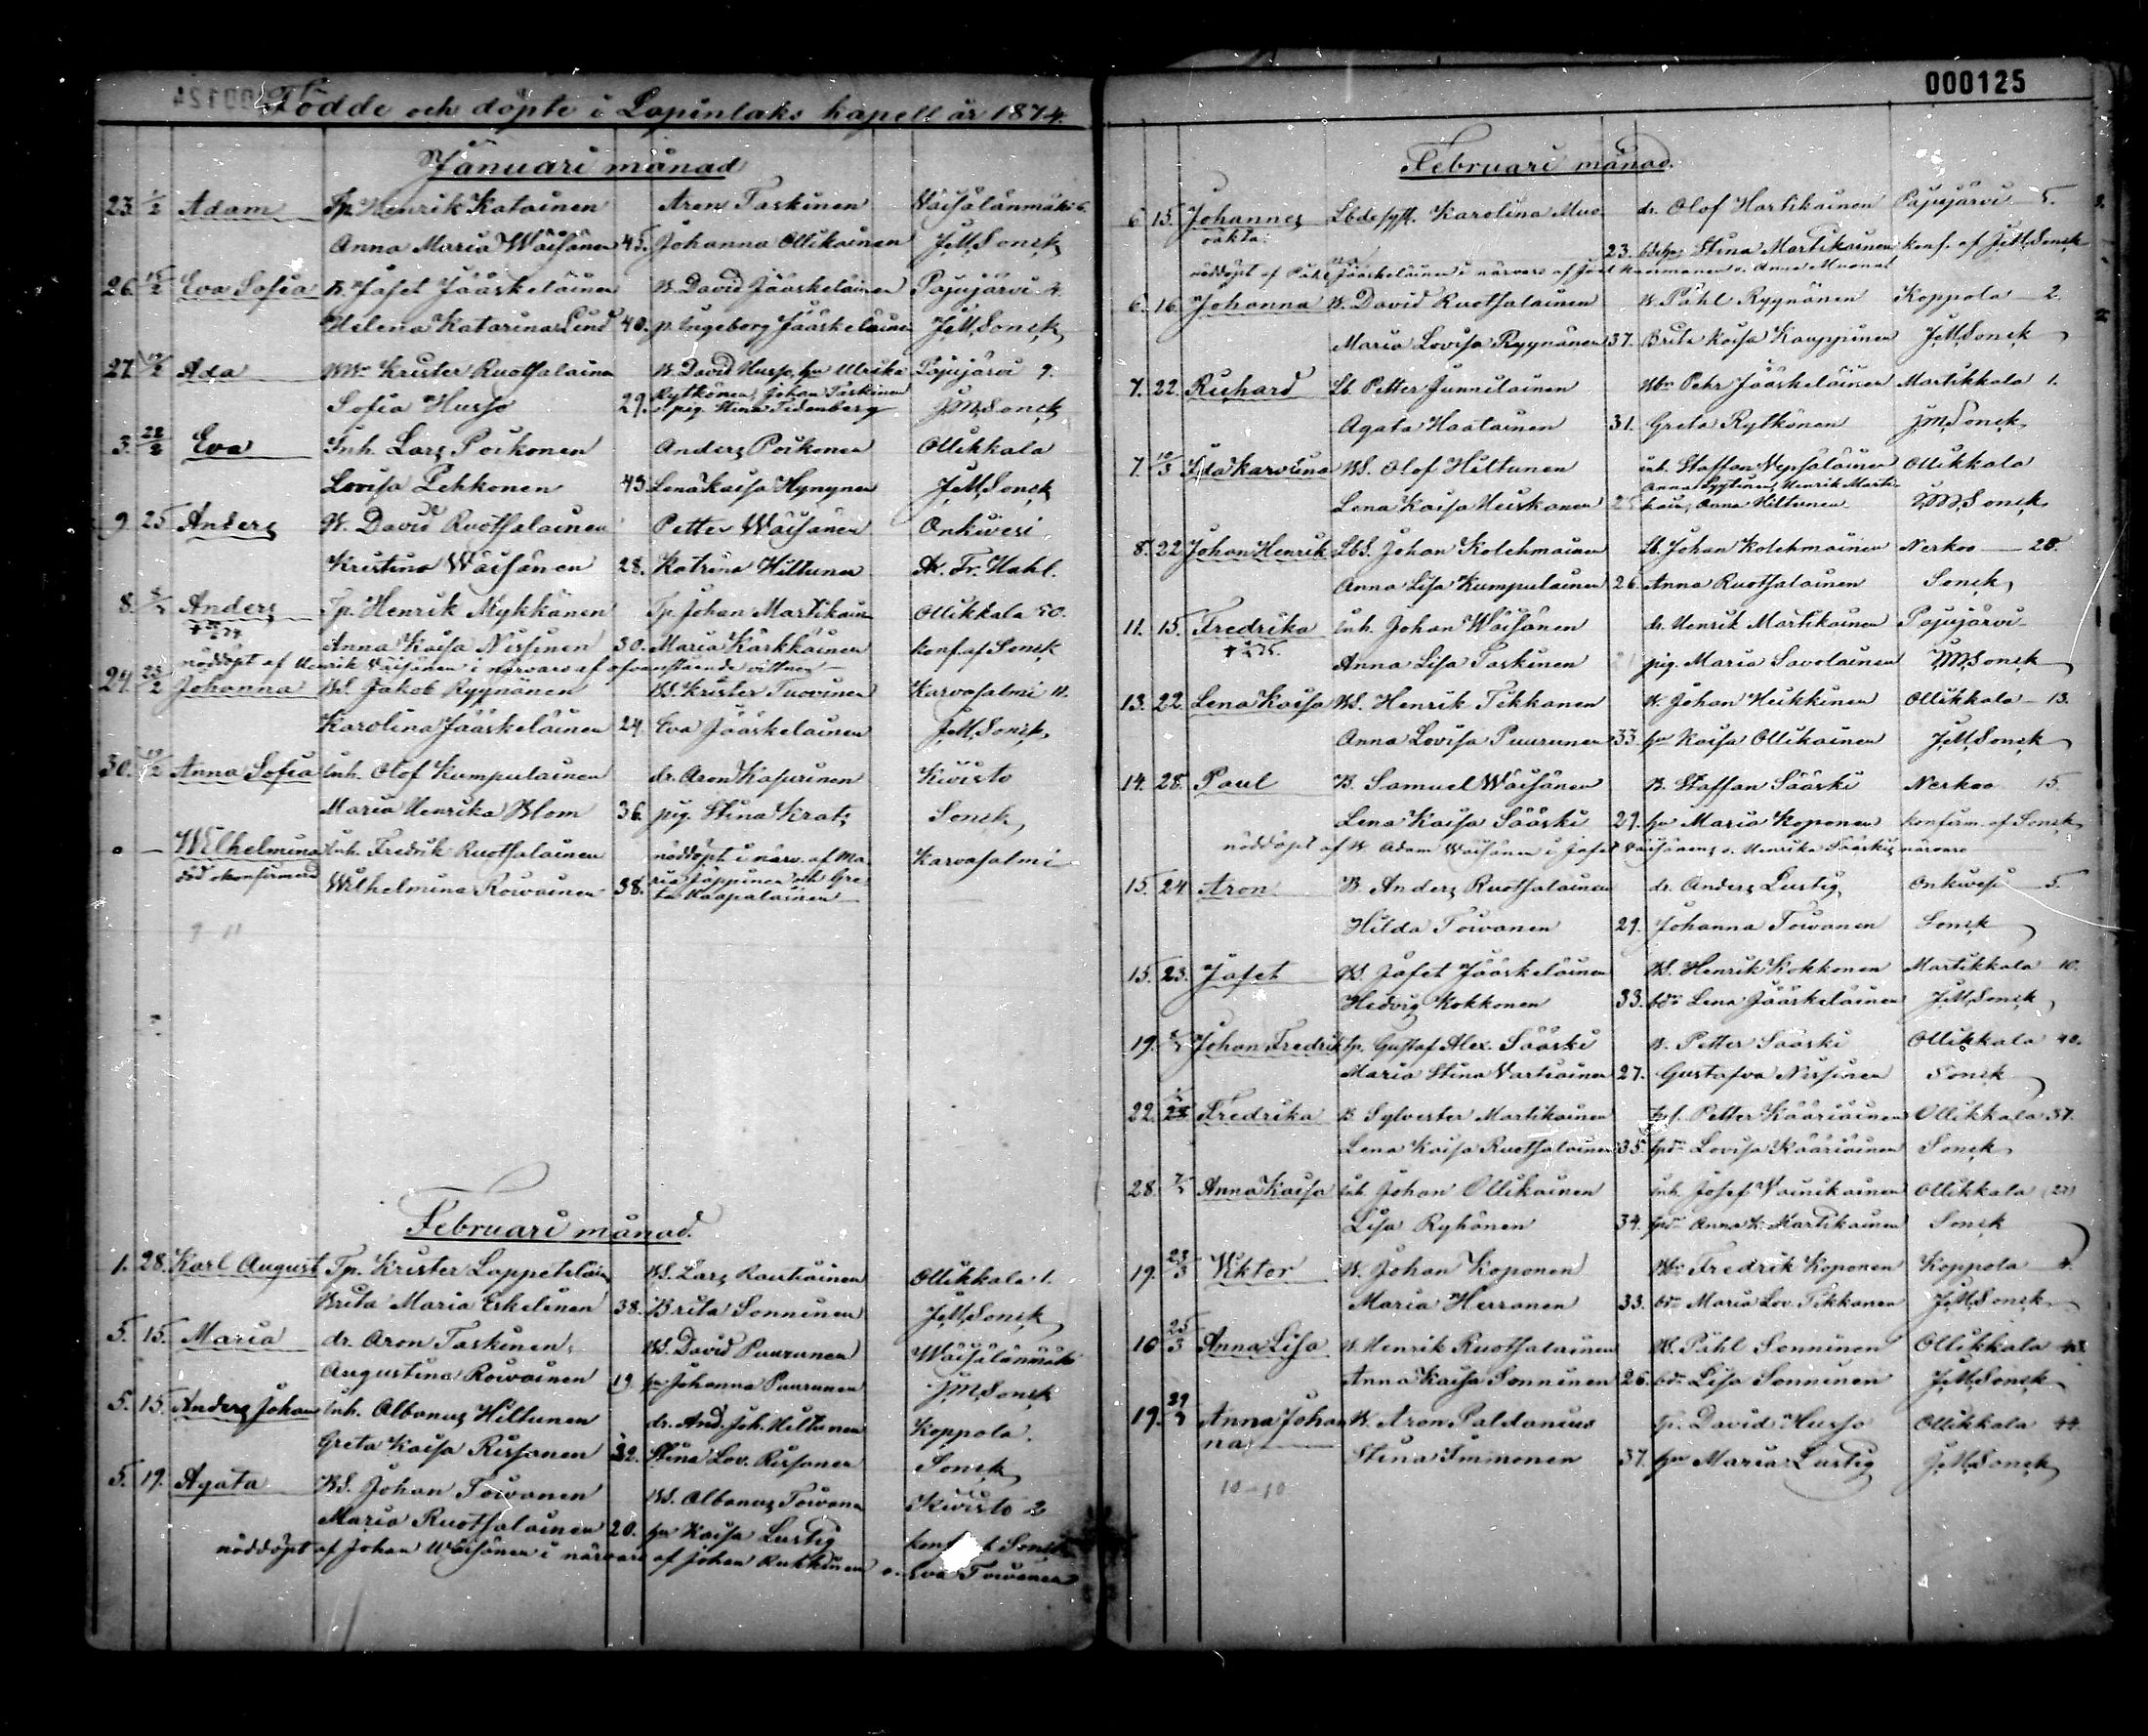 Födde och döpte i Lapinlaks kapell år 1874.
Januari månad
23. 1/2 Adam Tp. Henrik Katainen Aron Taskinen Wäisälänmäki 6.
Anna Maria Wäisänen 45. Johanna Ollikainen J.M.Sonck
26. 15/2 Eva Sofia B. Jafet Jääskeläinen B. David Jääskeläinen Pajujärvi 4.
Helena Katarina Lind 40. p. Ingeborg Jääskeläinen J.M.Sonck
27. Ada Krister Ruotsalainen B. David Husso, hu Ulrika Pajujärvi 9.
Rytkönen, Johan Taskinen
Sofia Husso 29. o pig. Stina Tidenberg J.M.Sonck
3. 22/2 Eva Inh. Lars Poikonen Anders Poikonen Ollikkala
Lovisa Pehkonen 43. Lena Kaisa Hynynen J.M.Sonck
9. 25 Anders B. David Ruotsalainen Petter Wäisänen Onkivesi
Kristina Wäisänen 28. Katrina Hiltunen A. Fr. Hahl.
8. Anders Tp. Henrik Nykkänen Tp. Johan Martikain Ollikkala 50.
Anna Kaisa Nissinen 30. Maria Kärkkäinen konf. af Sonck
nöddöpt af Henrik Väisänen i närvaro af ofvanstående vittnen
24. 22/2 Johanna BS. Jakob Ryynänen BS. Krister Tuovinen Karvasalmi 11.
Karolina Jääskeläinen 24. Eva Jääskeläinen J.M.Sonck
30. Anna Sofia Inh. Olof Kumpulainen dr. Aron Kapurinen Kivistö
Maria Henrika Blom 36. pig. Stina Krats Sonck
Wilhelmina Inh. Fredrik Ruotsalainen nöddöpt i närv. af Ma- Karvasalmi
ria Jäppinen och Gre-
död okonfirmerad Wilhelmina Roivainen 38. ta Kaapalainen
9 - 11
Februari månad.
1. 28. Karl August Tp. Krister Lappeteläin BS. Lars Rautiainen Ollikkala 1.
Brita Maria Eskelinen 38. Brita Sonninen J.M.Sonck
5. 15. Maria dr. Aron Taskinen BS. David Puurunen Wäisälänmäki
Augustina Roivainen 19. hu Johanna Puurunen J.M.Sonck
5. 15. Anders Johan Inh. Albanus Hiltunen dr. And. Joh. Hiltunen Koppola.
Greta Kaisa Rissanen 32. Stina Lov. Rissanen Sonck
5. 19. Agata BS. Johan Toivanen BS. Albanus Toivanen Kivistö 2
Maria Ruotsalainen 20. hu Kaisa Lustig Sonck
nöddöpt af Johan Wäisänen i närvaro af Johan Rukkinen o. Eva Toivanen
000125
Februari månad.
6. 15. Johannes Lbdespft. Karolina Muo dr. Olof Hartikainen Pajujärvi 5.
oäkta. 23. Stina Martikainen konf. af J.M.Sonck
nöddöpt af Påhl Jääskeläinen i närvaro af Joel o. Anna Muonat
6. 16. Johanna B. David Ruotsalainen B. Påhl Ryynänen Koppola 2.
Maria Lovisa Ryynänen 37. Brita Kaisa Kauppinen J.M.Sonck
7. 22. Richard Lb. Petter Junnilainen Pehr Jääskeläinen Martikkala 1.
Agata Haatainen 31. Greta Rytkönen J.M.Sonck
7. 10/3 Ida Karolina BS. Olof Hiltunen inh. Staffan Vepsäläinen Ollikkala
Anna Lyytinen, Henrik Marti-
Lena Kaisa Heiskanen kain, Anna Hiltunen J.M.Sonck
8. 22 Johan Henrik LbS. Johan Kolehmainen Lb. Johan Kolehmainen Nerkoo 28.
Anna Lisa Kumpulainen 26. Anna Ruotsalainen Sonck
11. 15. Fredrika Inh. Johan Wäisänen dr. Henrik Martikainen Pajujärvi
Anna Lisa Taskinen pig. Maria Savolainen J.M.Sonck
13. 22. Lena Kaisa BS. Henrik Tikkanen B. Johan Heikkinen Ollikkala 13.
Anna Lovisa Puurunen 33. hu Kaisa Ollikainen J.M.Sonck
14. 28. Paul B. Samuel Wäisänen B. Staffan Sääski Nerkoo 15.
Lena Kaisa Sääski 29. hu Maria Koponen konfirm. af Sonck
nöddöpt af B. Adam Wäisänen i Jafet Väisänens o. Henrika Sääskis närvaro
15. 24 Aron B. Anders Ruotsalainen dr. Anders Lustig Onkivesi 5.
Hilda Toivanen 29. Johanna Toivanen Sonck
15. 23. Jafet BS. Jafet Jääskeläinen BS. Henrik Kokkonen Martikkala 10.
Hedvig Kokkonen 33. Lena Jääskeläinen J.M.Sonck
19. Johan Fredrik tp. Gustaf Alex. Sääski B. Petter Sääski Ollikkala 40.
Maria Stina Vartiainen 27. Gustafva Nissinen Sonck
22. Fredrika B. Sylvester Martikainen Petter Kääriäinen Ollikkala 37.
Lena Kaisa Ruotsalainen 35. Lovisa Kääriäinen Sonck
28 Anna Kaisa Inh. Johan Ollikainen Inh. Josef Vainikainen Ollikkala
Lisa Ryhänen 34. Anna K. Martikainen Sonck
19. 23/3 Viktor B. Johan Koponen Fredrik Koponen Koppola
Maria Herranen 33. Maria Lov. Tikkanen J.M.Sonck
10 25/3 Anna Lisa B. Henrik Ruotsalainen BS. Påhl Sonninen Ollikkala
Anna Kaisa Sonninen 26. Lisa Sonninen J.M.Sonck
19. 29/3 Anna Johan B. Aron Paldanius tp. David Husso Ollikkala 44.
na Stina Immonen 37. hu Maria Lustig J.M.Sonck
10 - 10